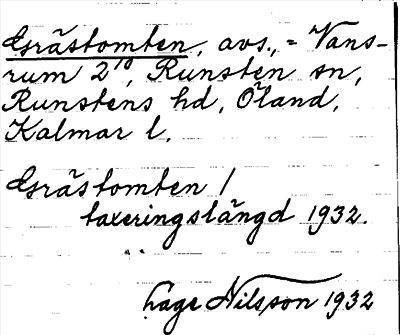 Gråstomten, avs., = Vans-
rum 2¹⁰, Runsten sn,
Runstens hd, Öland,
Kalmar l.
Gråstomten /
taxeringslängd 1932.
Låge Nilsson 1932